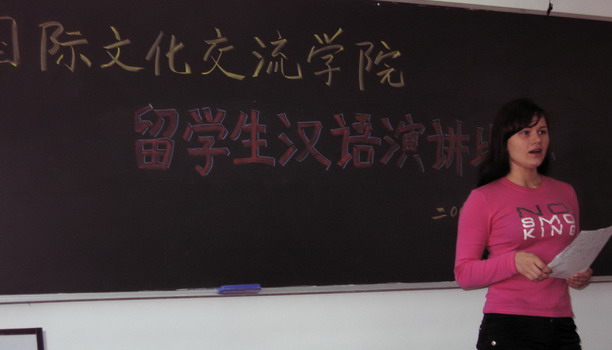 国际文化交流学院
留学生汉语演讲比
二0
NO
SMO
KING